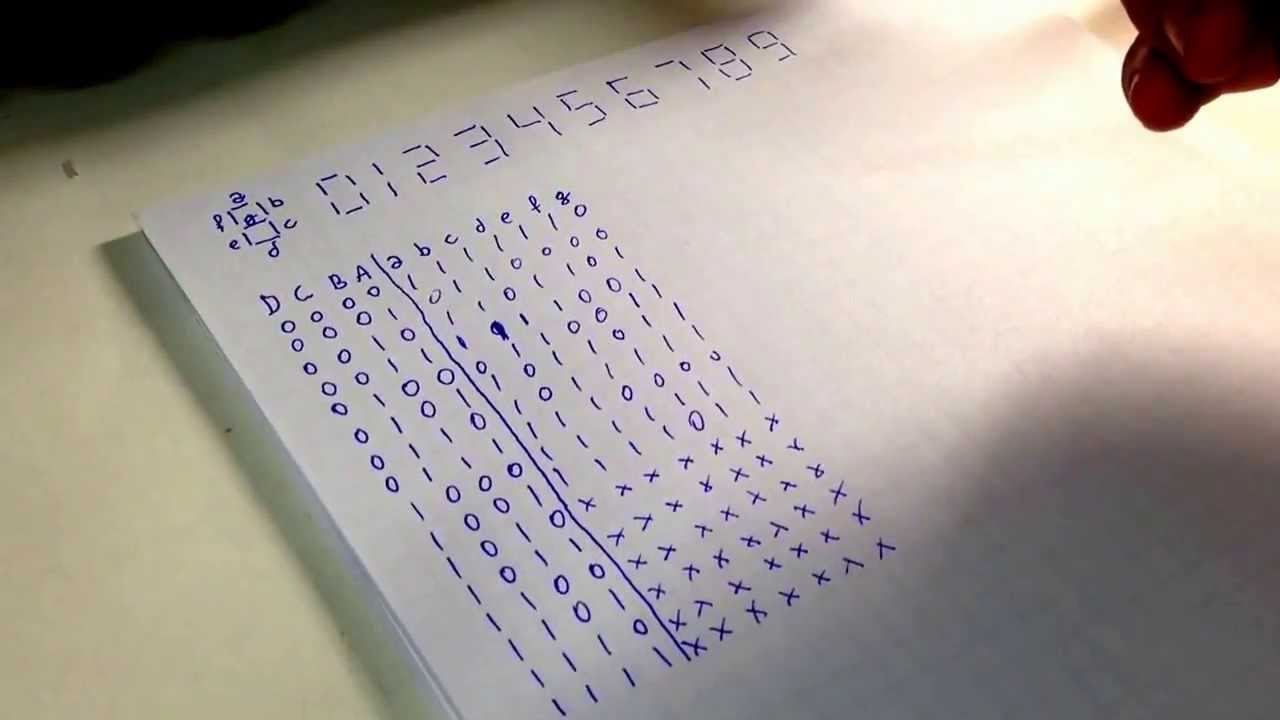 0 1 2 3 4 5 6 7 8 9
a
f g b
e c
d
D C B A a b c d e f g
0 0 0 0 1 1 1 1 1 1 0
0 0 0 1 0 1 1 0 0 0 0
0 0 1 0 1 1 0 1 1 0 1
0 0 1 1 1 1 1 1 0 0 1
0 1 0 0 0 1 1 0 0 1 1
0 1 0 1 1 0 1 1 0 1 1
0 1 1 0 1 0 1 1 1 1 1
0 1 1 1 1 1 1 0 0 0 0
1 0 0 0 1 1 1 1 1 1 1
1 0 0 1 1 1 1 1 0 1 1
1 0 1 0 x x x x x x x
1 0 1 1 x x x x x x x
1 1 0 0 x x x x x x x
1 1 0 1 x x x x x x x
1 1 1 0 x x x x x x x
1 1 1 1 x x x x x x x